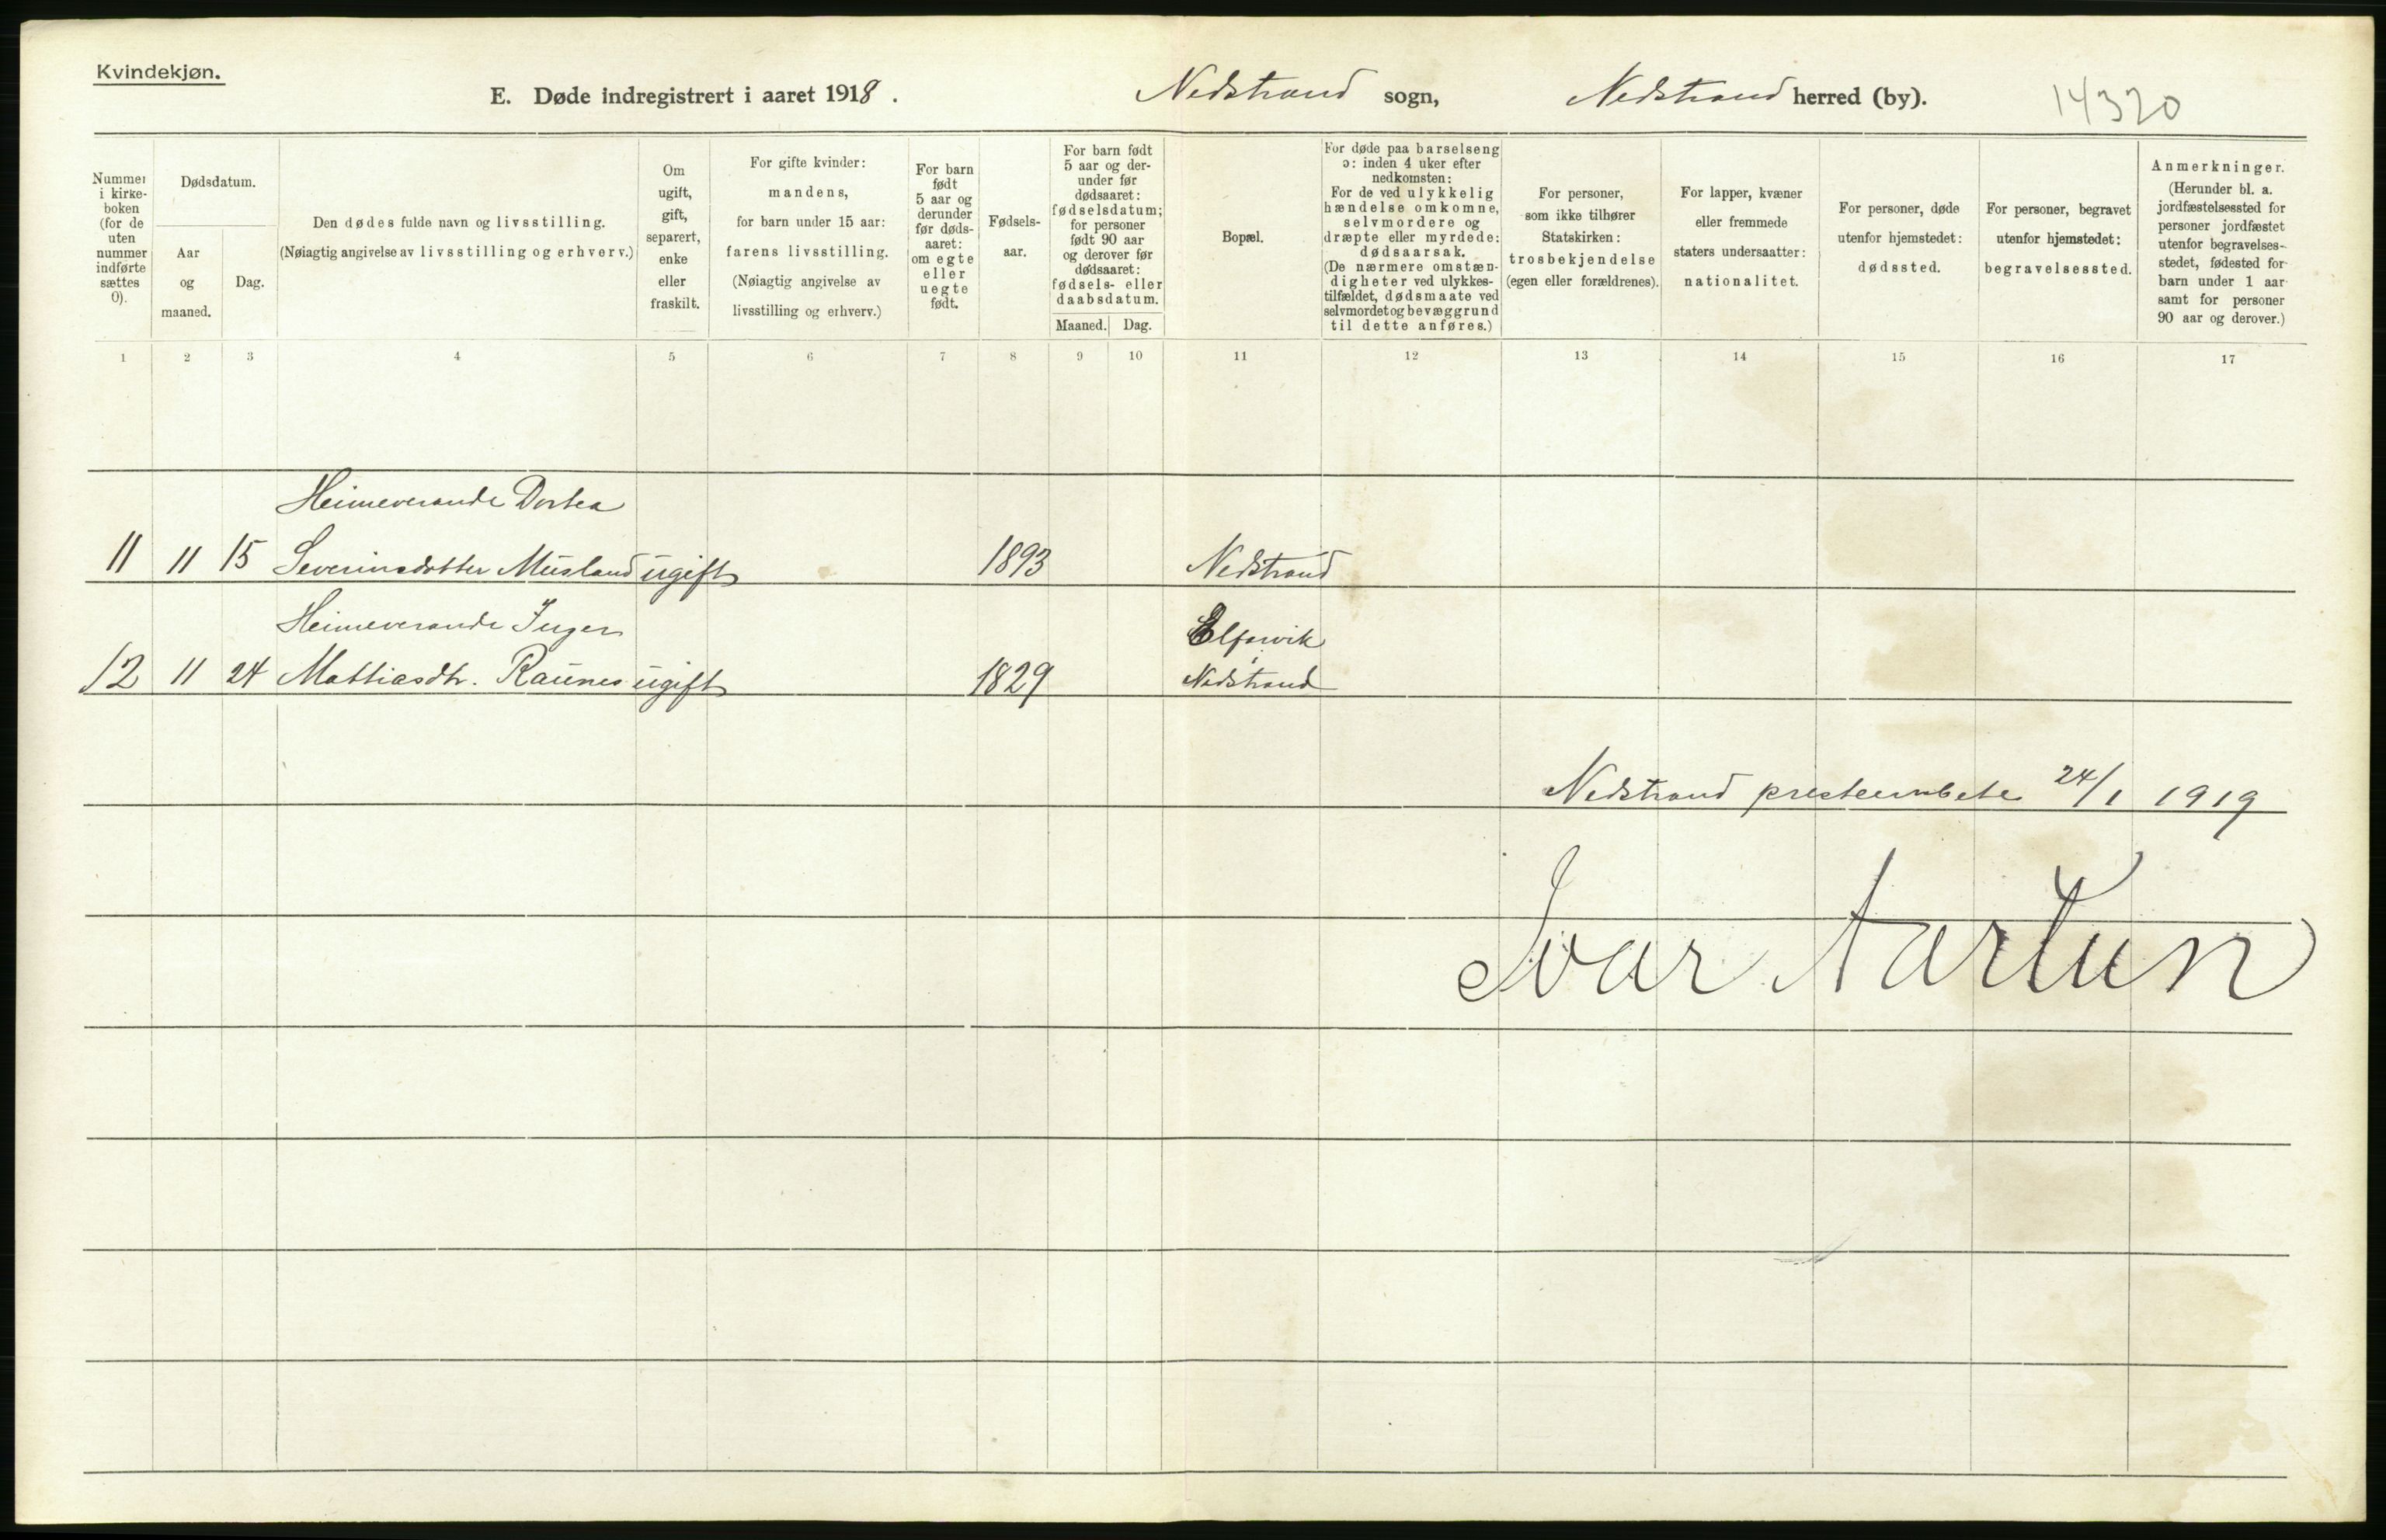 Kvindekjøn.
E. Døde indregistrert i aaret 1918. Nedstrand sogn, Nedstrand herred (by). 14320
Nummer
i kirke-
boken
(for de
uten
nummer
indførte
sættes
0).
Dødsdatum.
Aar
og
maaned.
Dag.
Den dødes fulde navn og livsstilling.
(Nøiagtig angivelse av livsstilling og erhverv.)
Om
ugift,
gift,
separert,
enke
eller
fraskilt.
For gifte kvinder:
mandens,
for barn under 15 aar:
farens livsstilling.
(Nøiagtig angivelse av
livsstilling og erhverv.)
For barn
født
5 aar og
derunder
før døds-
aaret:
om egte
eller
uegte
født.
Fødsels-
aar.
For barn født
5 aar og der-
under før
dødsaaret:
fødselsdatum;
for personer
født 90 aar
og derover før
dødsaaret:
fødsels- eller
daabsdatum.
Maaned. Dag.
Bopæl.
For døde paa barselseng
ɔ: inden 4 uker efter
nedkomsten:
For de ved ulykkelig
hændelse omkomne,
selvmordere og
dræpte eller myrdede:
dødsaarsak.
(De nærmere omstæn-
digheter ved ulykkes-
tilfældet, dødsmaate ved
selvmordet og bevæggrund
til dette anføres.)
For personer,
som ikke tilhører
Statskirken:
trosbekjendelse
(egen eller forældrenes).
For lapper, kvæner
eller fremmede
staters undersaatter:
nationalitet.
For personer, døde
utenfor hjemstedet:
dødssted.
For personer, begravet
utenfor hjemstedet:
begravelsessted.
Anmerkninger.
(Herunder bl. a.
jordfæstelsessted for
personer jordfæstet
utenfor begravelses-
stedet, fødested for
barn under 1 aar
samt for personer
90 aar og derover.)
1 2 3 4 5 6 7 8 9 10 11 12 13 14 15 16 17
Heimeverande Dortea
11 11 15 Severinsdotter Musland ugift 1893 Nedstrand
Heimeverande Inger Elfarvik
12 11 24 Mattiasdtr. Raunes ugift 1829 Nedstrand
Nedstrand presteembete 24/1 1919
Ivar Aartun